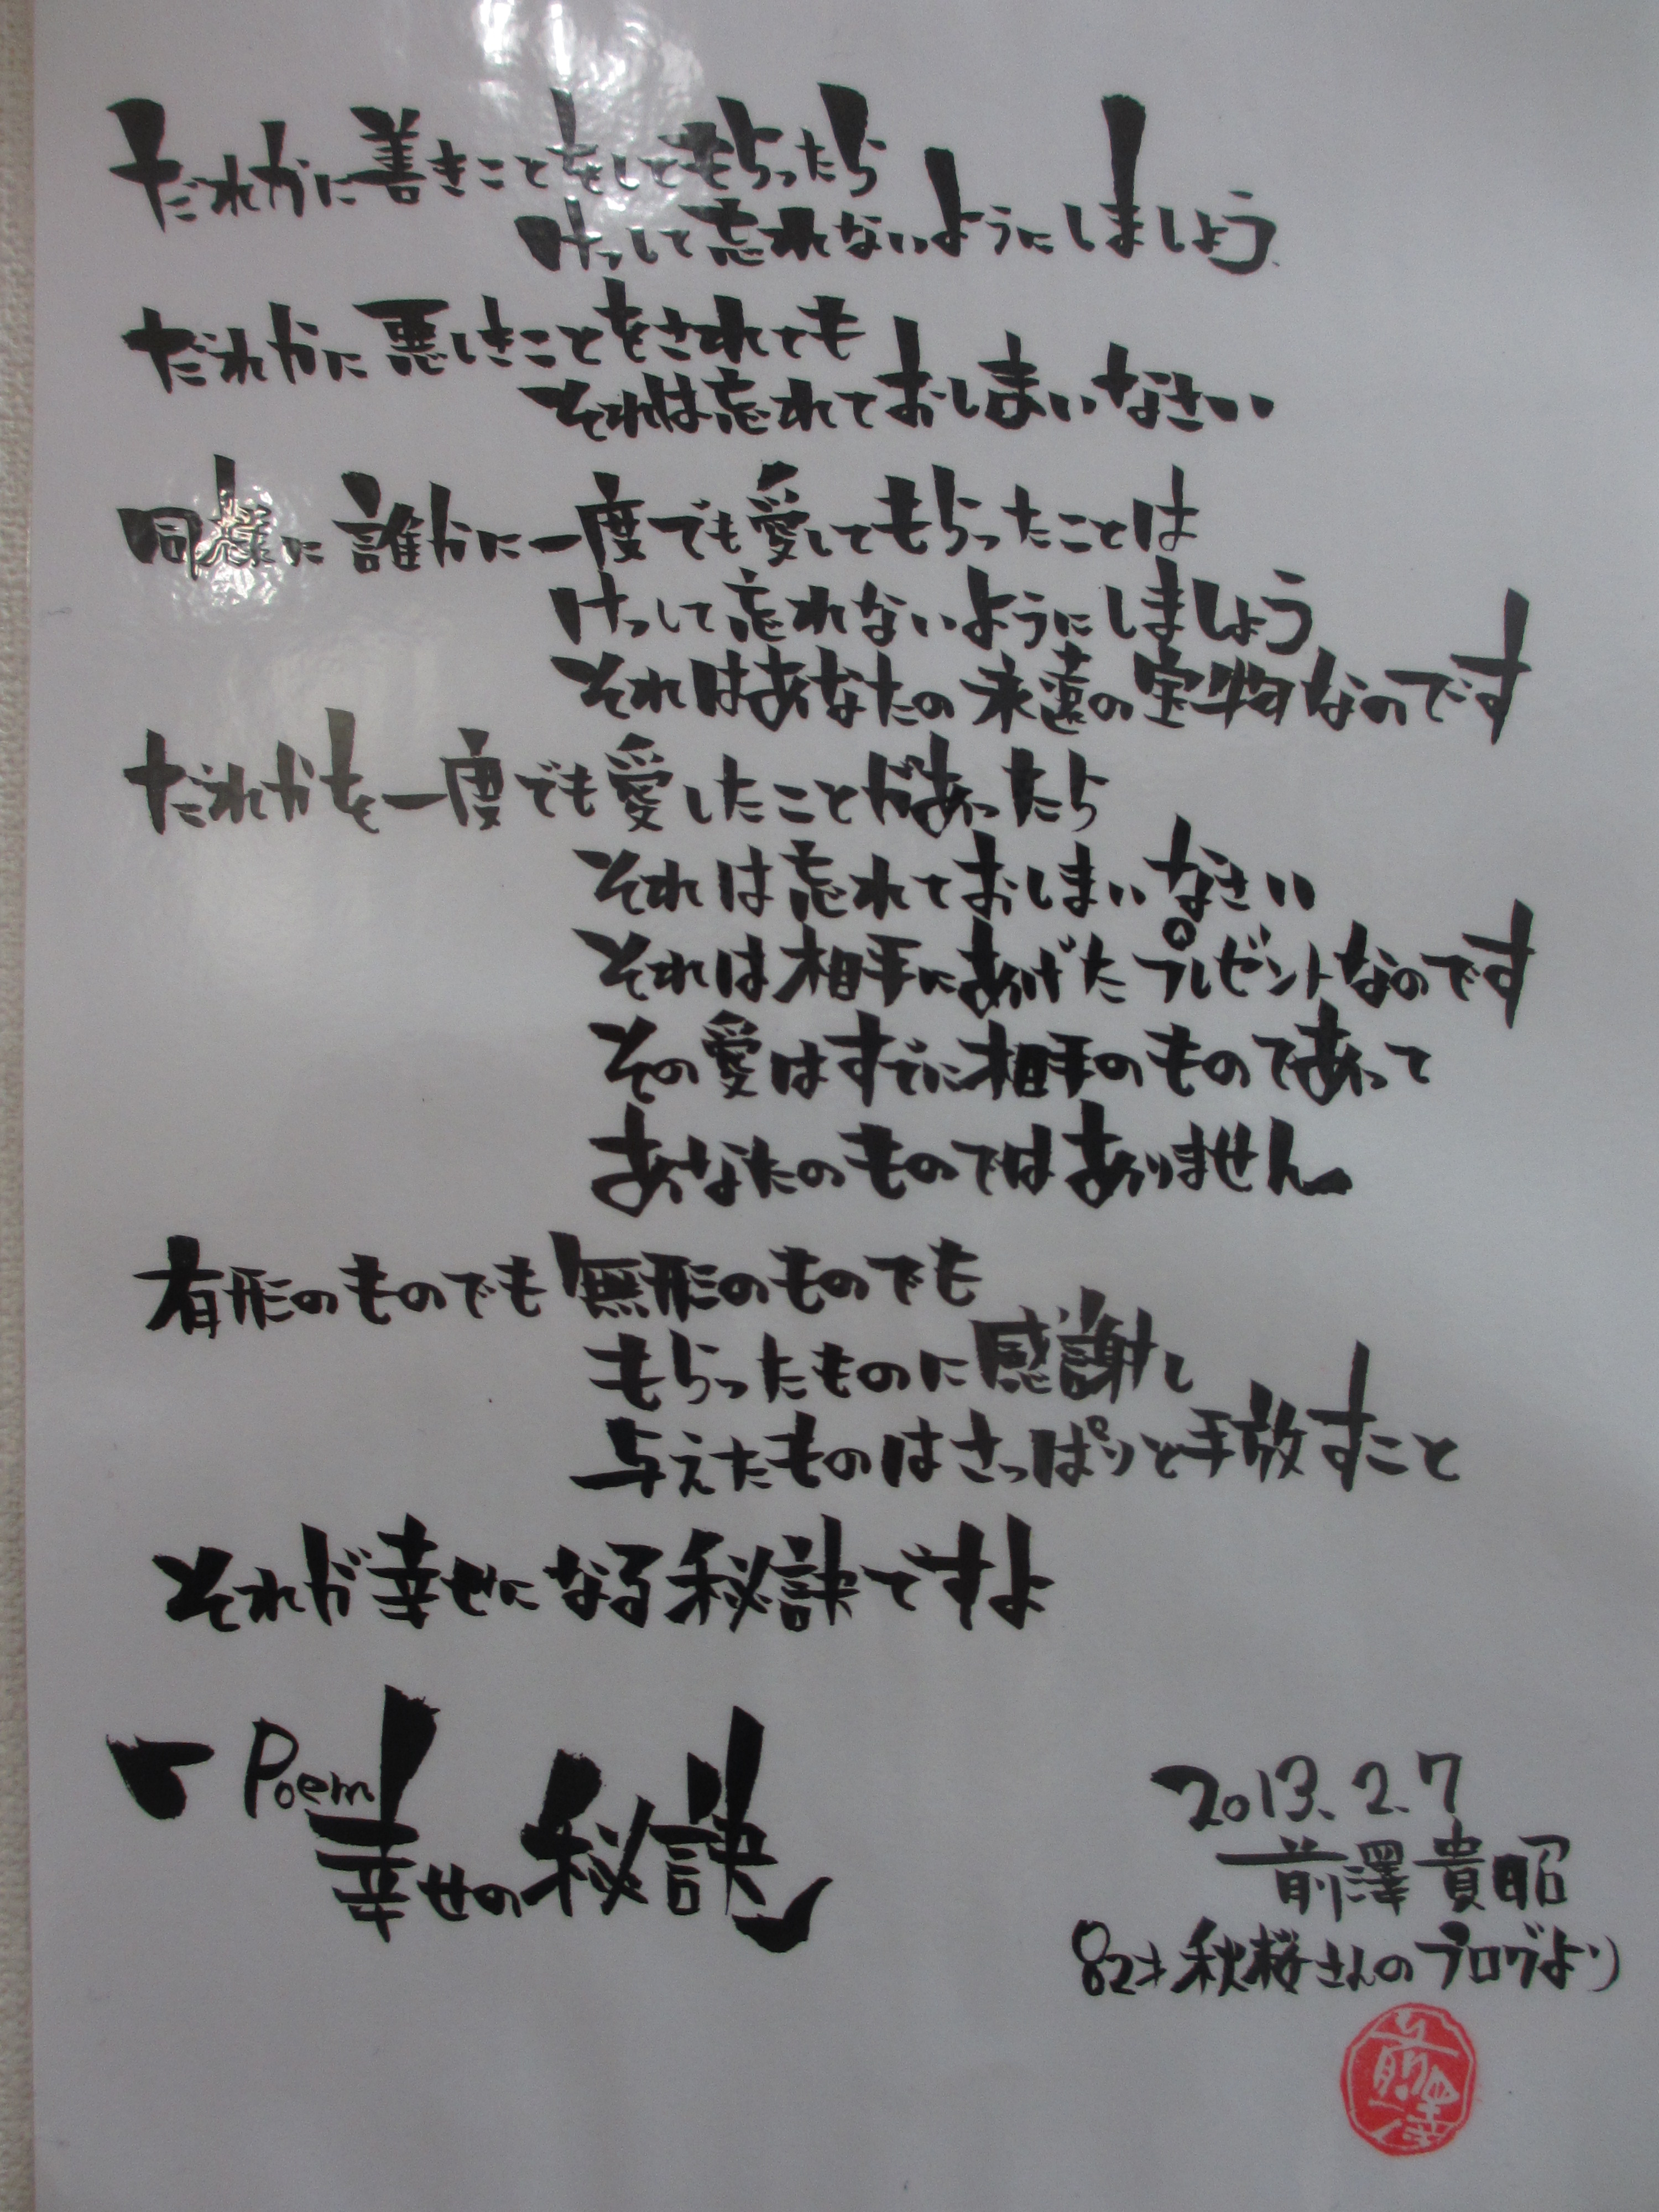 だれかに善きことをしてもらったら
けっして忘れないようにしましょう
だれかに悪しきことをされても
それは忘れておしまいなさい
同様に誰かに一度でも愛してもらったことは
けっして忘れないようにしましょう
それはあなたの永遠の宝物なのです
だれかを一度でも愛したことがあったら
それは忘れておしまいなさい
それは相手にあげたプレゼントなのです
その愛はすでに相手のものであって
あなたのものではありません
有形のものでも無形のものでも
もらったものに感謝し
与えたものはさっぱりと手放すこと
それが幸せになる秘訣ですよ
Poem
幸せの秘訣
2013.2.7
前澤貴昭
82才秋桜さんのブログより
前澤